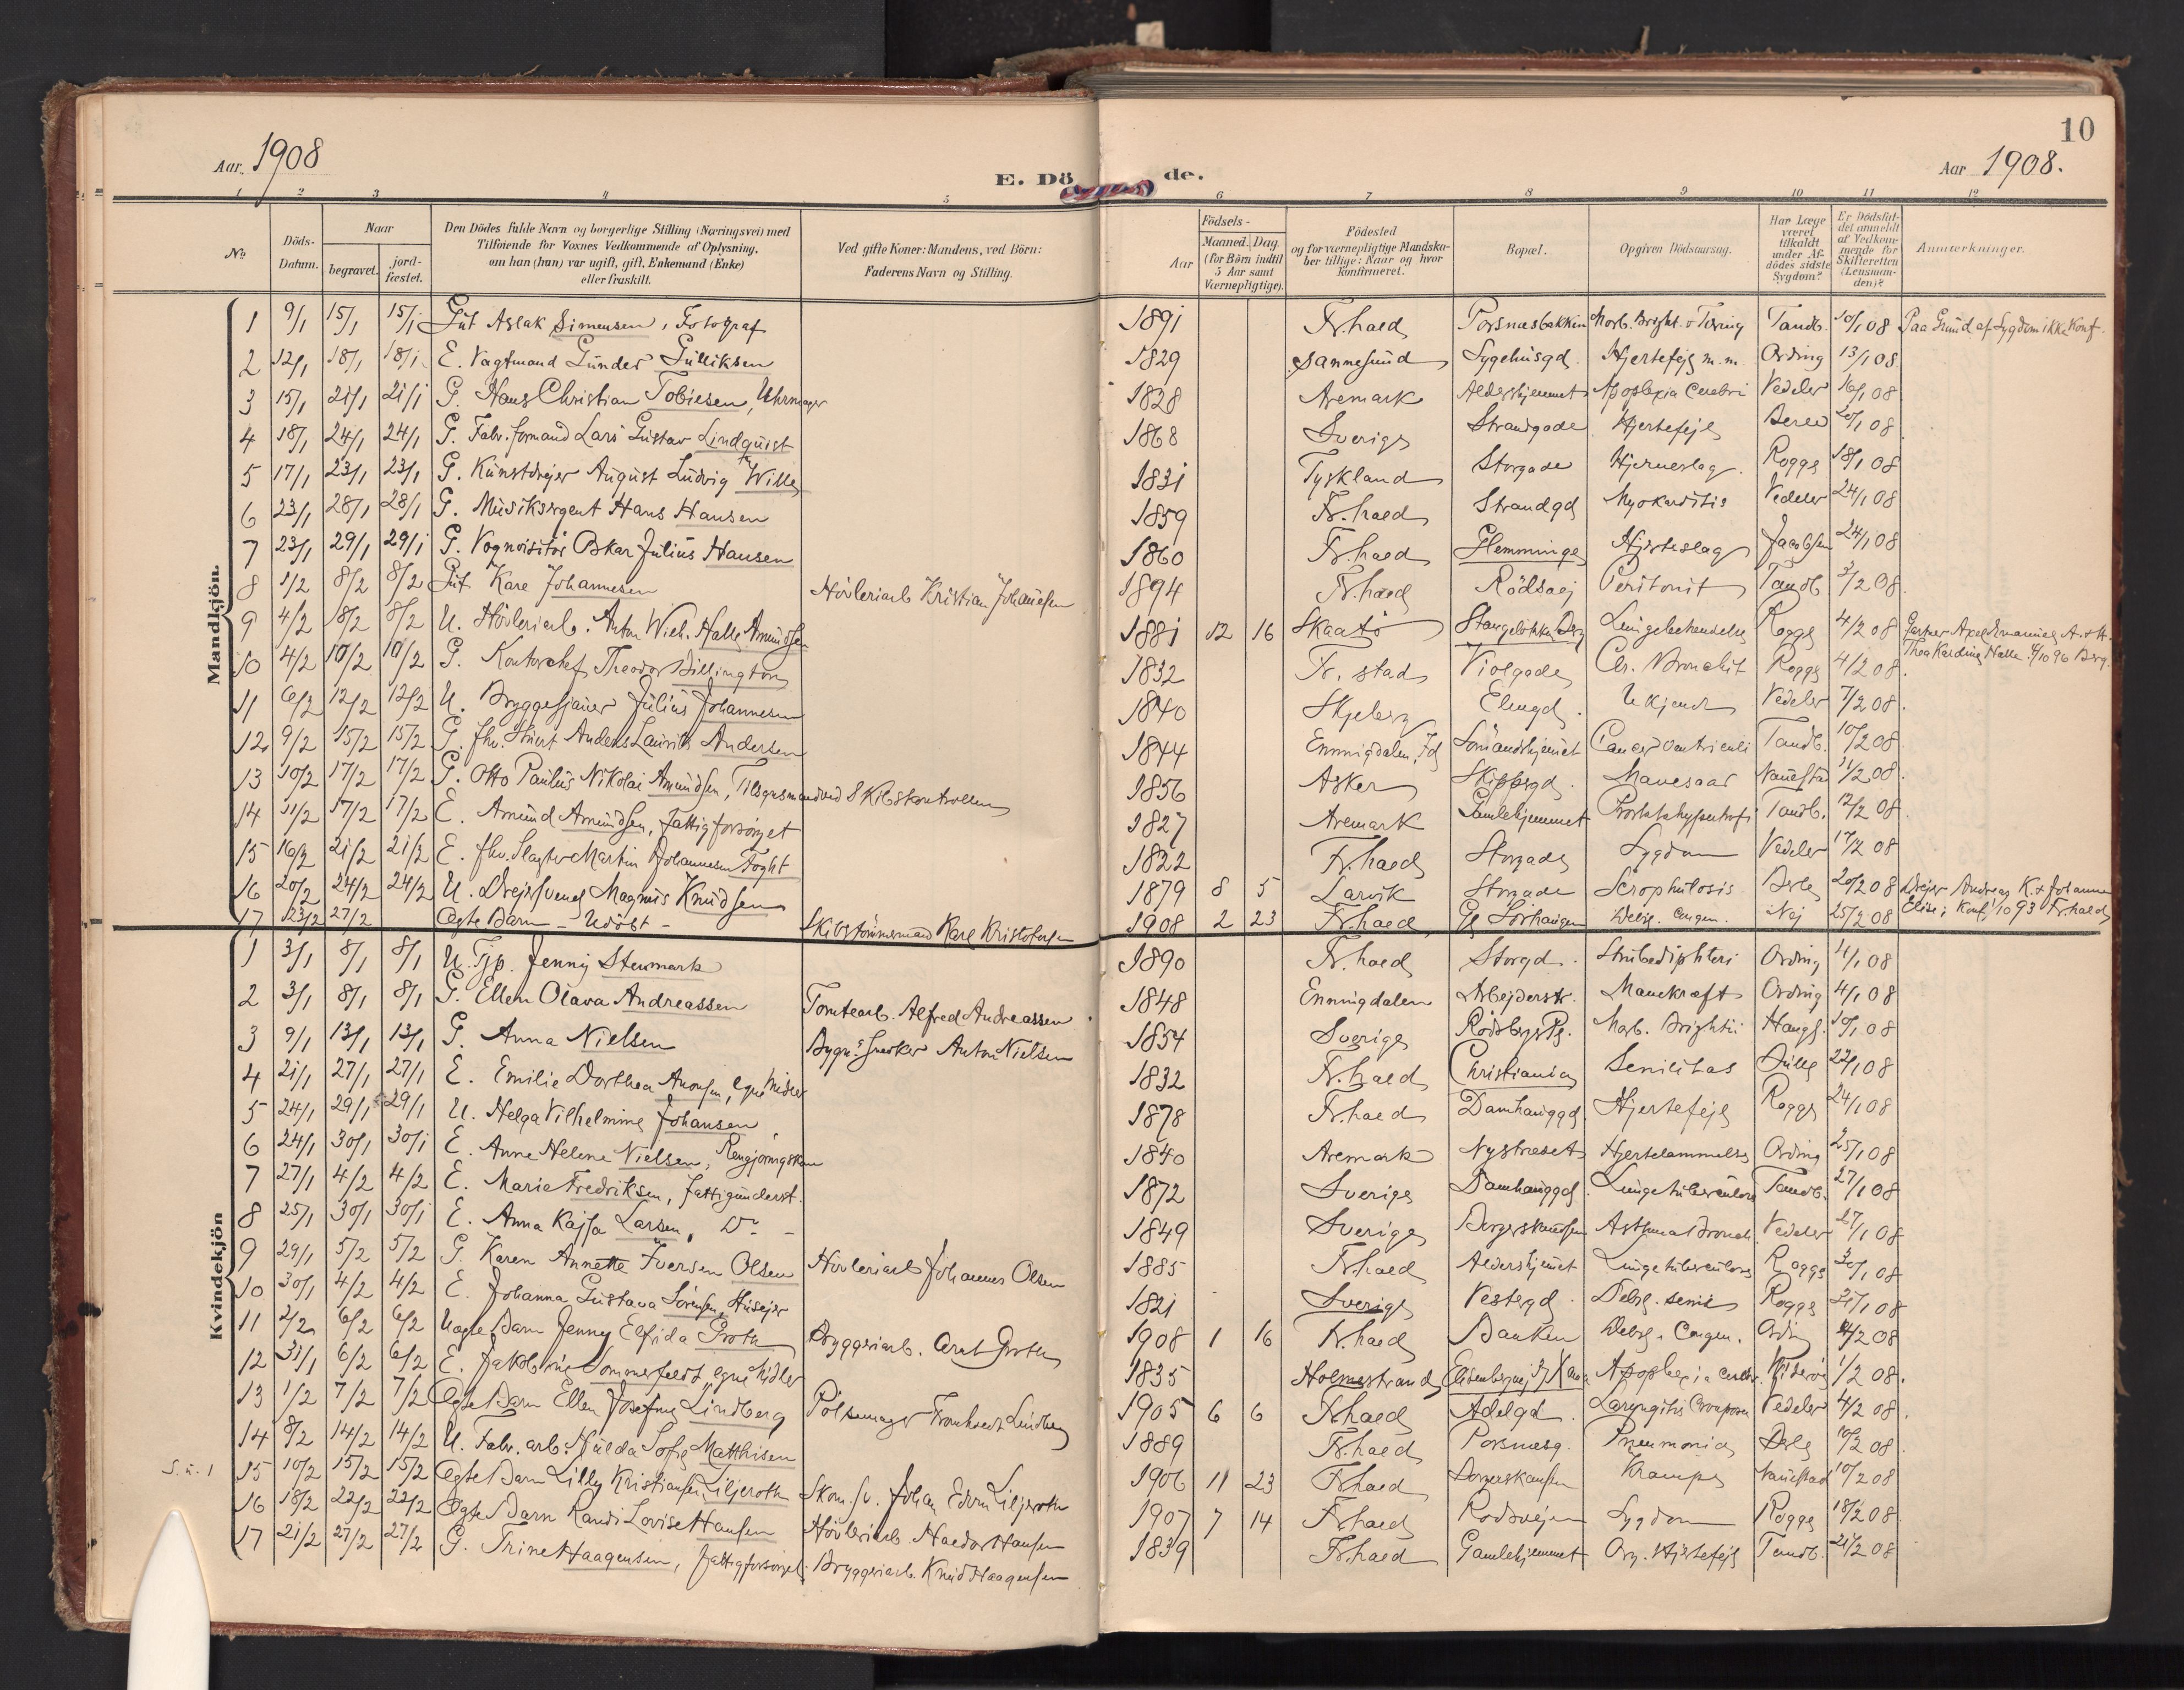 10
Aar 1908
E. Dö de.
Aar 1908.
1 2 3 4 5 6 7 8 9 10 11 12
No
Döds-Datum.
Naar
begravet.
jord-fæstet.
Den Dödes fulde Navn og borgerlige Stilling (Næringsvei) med
Tilföiende for Voxnes Vedkommende af Oplysning,
om han (hun) var ugift, gift, Enkemand (Enke)
eller fraskilt.
Ved gifte Koner: Mandens, ved Börn:
Faderens Navn og Stilling.
Födsels-
Aar
Maaned. Dag.
(for Börn indtil
5 Aar samt
Værnepligtige).
Födested
og for værnepligtige Mandska-
ber tillige: Naar og hvor
konfirmeret.
Bopæl.
Opgiven Dödsaarsag.
Har Læge
været
tilkaldt
under Af-
dödes sidste
Sygdom?
Er Dödsfal-
det anmeldt
af Vedkom-
mende for
Skifteretten
(Lensman-
den)?
Anmerkninger.
Mandkjön.
1 9/1 15/1 15/1 Gut Aslak Simensen, Fotograf 1891 Fr.hald Porsnæsbakken Morb. Bright. o Tæring Tandb. 10/1 08 Paa Grund af Sygdom ikke Konf.
2 12/1 18/1 18/1 E. Vagtmand Gunder Gulliksen 1829 Sannesund Sygehusgd. Hjertefejl m.m. Ording 13/1 08
3 15/1 21/1 21/1 G. Hans Christian Tobiesen, Uhrmager 1828 Aremark Aldershjemmet Apoplexia Cerebri Vedeler 16/1 08
4 18/1 24/1 24/1 G. Fabr. formand Lars Gustav Lindquist 1868 Sverige Strandgade Hjertefejl 20/1 08
5 17/1 23/1 23/1 G. Kunstdrejer August Ludvig Wille 1831 Tyskland Storgade Hjerneslag Rogge 18/1 08
6 23/1 28/1 28/1 G. Musiksergent Hans Hansen 1859 Fr.hald Strandgd Myokarditis Vedeler 24/1 08
7 23/1 29/1 29/1 G. Vognvisitör Oskar Julius Hansen 1860 Fr.hald Glemminge Hjerteslag Jacobsen 24/1 08
8 1/2 8/2 8/2 Gut Kare Johannesen Hövleriarb Kristian Johannesen 1894 Fr.hald Rödsvej Peritonit Tandb. 3/2 08
9 4/2 18/2 8/2 U. Hövleriarb. Anton Wilh. Halle Amundsen 1881 12 16 Skaatö Stangelökka Berg Lungebetændelse Rogge 4/2 08 Gartner Axel Emanuel A. + H.
Thea Kardine Halle 4/10 96 Berg.
10 4/2 10/2 10/2 G. Kontorchef Theodor Dillington 1832 Fr.stad Violgade Chr. Bronchit Rogge 4/2 08
11 6/2 12/2 12/2 U. Bryggesjauer Julius Johannesen 1840 Skjeberg Elvegd. Ukjendt Vedeler 7/2 08
12 9/2 15/2 15/2 G. fhv. Stuert Anders Laurits Andersen 1844 Enningdalen, Id Sömandshjemet Cancer Ventriculi Tandb. 10/2 08
13 10/2 17/2 17/2 G. Otto Paulus Nikolai Amundsen, Tilsynsmand ved Skibskontrollen 1856 Asker Skippergd. Mavesaar Nauestad 11/2 08
14 11/2 17/2 17/2 E. Amund Amundsen, fattigforsörget 1827 Aremark Gamlehjemmet Prostatahypertrofi Tandb. 12/2 08
15 16/2 21/2 21/2 E. fhv. Slagter Martin Johannesen Foght 1822 Fr.hald Storgade Sygdom Vedeler 17/2 08
16 20/2 24/2 24/2 U. Drejersvend Magnus Knudsen 1879 8 5 Larvik Storgade Scrophulosis 20/2 08 Drejer Andreas K. + Johanne
Elise; Konf. 1/10 93 Fr.hald
17 23/2 27/2 Ægte Barn - Udöbt - Skibstömmermand Karl Kristofersen 1908 2 23 Fr.hald Gl Sörhaugen Debil. congen. Nej 25/2 08
Kvindekjön
1 3/1 8/1 8/1 U. Tjp. Jenny Stenmark 1890 Fr.hald Storgd. Strubediphteri Ording 4/1 08
2 3/1 8/1 8/1 G. Ellen Olava Andreassen Tomtearb. Alfred Andreassen 1848 Enningdalen Arbejderstr. Mavekræft Ording 4/1 08
3 9/1 13/1 13/1 G. Anna Nielsen Bygn.s Snedker Anton Nielsen 1854 Sverige Rödsberg Pl. Morb. Brightii Haugs. 10/1 08
4 21/1 27/1 27/1 E. Emilie Dorthea Aronsen, egne Midler 1832 Fr.hald Christiania Senilitas 22/1 08
5 24/1 29/1 29/1 U. Helga Vilhelmine Johansen 1878 Fr.hald Damhauggd Hjertefejl Rogge 24/1 08
6 24/1 30/1 30/1 E. Anne Helene Nielsen, Rengjöringskone 1840 Aremark Nystredet Hjertelammelse Ording 25/1 08
7 27/1 4/2 4/2 E. Maria Fredriksen, fattigunderst. 1872 Sverige Damhauggd. Lungetuberculose Tandb. 27/1 08
8 25/1 30/1 30/1 E. Anna Kajsa Larsen, Do - 1849 Sverige Borgerskansen Asthma Bronch. Vedeler 27/1 08
9 29/1 5/2 5/2 G. Karen Annette Iversen Olsen Hövleriarb Johannes Olsen 1885 Fr.hald Aldershjemet Lungetuberculose Rogge 30/1 08
10 30/1 4/2 4/2 E. Johanna Gustava Sörensen, Husejer 1821 Sverige Vestergd. Debil. senil Rogge 31/1 08
11 2/2 6/2 6/2 Uægte Barn Jenny Elfida Groth Bryggeriarb. Arnt Groth 1908 1 16 Fr.hald Banken Debil. Congen. Ording 4/2 08
12 31/1 6/2 6/2 E. Jakobine Sommerfeldt, egne Midler 1835 Holmestrand Apoplexia cerebr. 1/2 08
13 1/2 7/2 7/2 Ægte Barn Ellen Josefine Lindberg Pölsemager Lindberg 1905 6 6 Fr.hald Adelgd. Laryngitis Crouposa Vedeler 4/2 08
14 8/2 14/2 14/2 U. Fabr. arb. Hulda Sofie Matthisen 1889 Fr.hald Porsnesg. Pneumonia 10/2 08
S. u. 1 15 10/2 15/2 15/2 Ægte Barn Lilly Kristiansen Liljeroth Skom. sv. Johan Edvin Liljeroth 1906 11 23 Fr.hald Borgerskansen Krampe Nauestad 10/2 08
16 18/2 22/2 22/2 Ægte Barn Randi Lovise Hansen Hövleriarb Haldor Hansen 1907 7 14 Fr.hald Rodsvejen Sygdom Rogge 18/2 08
17 21/2 27/2 27/2 G. Trine Haagensen, fattigforsörget Bryggeriarb. Knud Haagensen 1839 Fr.hald Gamlehjemmet Org. Hjertefejl Tandb. 21/2 08